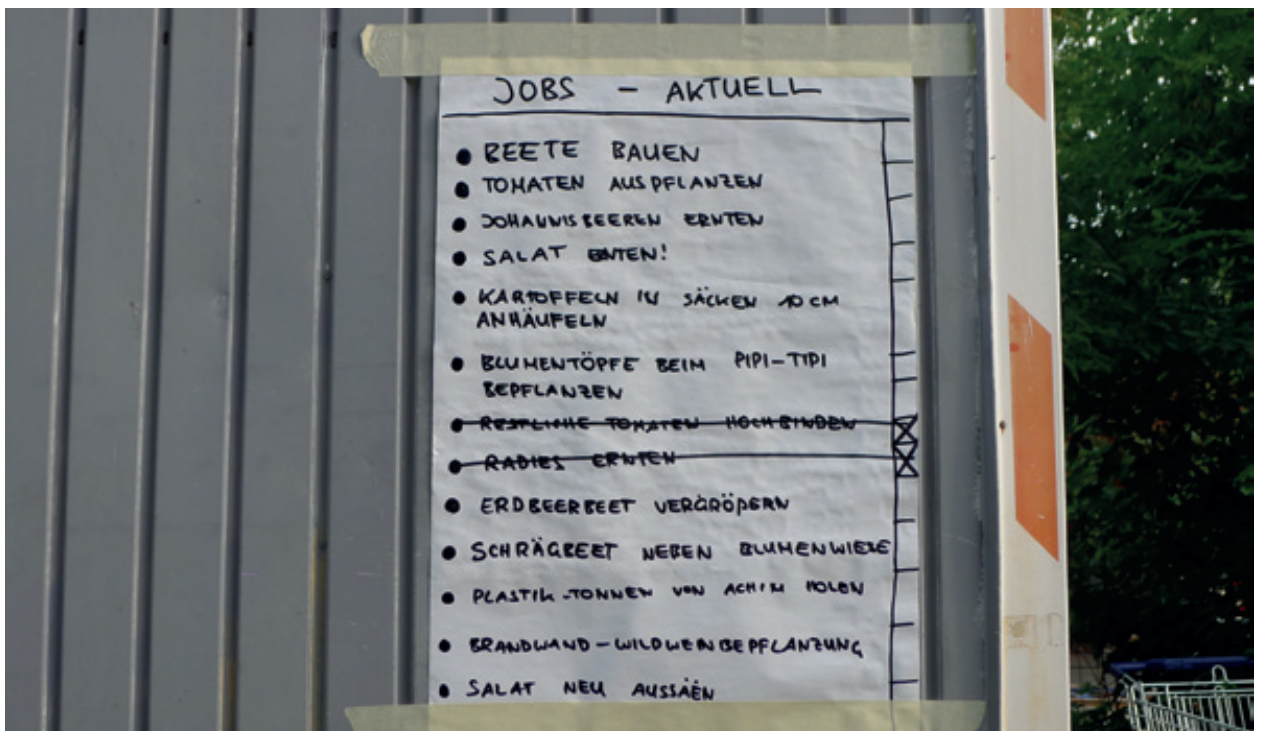 JOBS - AKTUELL
• BEETE BAUEN
• TOMATEN AUSPFLANZEN
• JOHANNISBEEREN ERNTEN
• SALAT ERNTEN!
• KARTOFFELN IN SÄCKEN 10 CM
ANHÄUFELN
• BLUMENTÖPFE BEIM PIPI-TIPI
BEPFLANZEN
• RESTLICHE TOMATEN HOCHBINDEN
• RADIES ERNTEN
• ERDBEERBEET VERGRÖßERN
• SCHRÄGBEET NEBEN BLUMENWIESE
• PLASTIK-TONNEN VON ACHIM HOLEN
• BRANDWAND-WILDWEINBEPFLANZUNG
• SALAT NEU AUSSÄEN